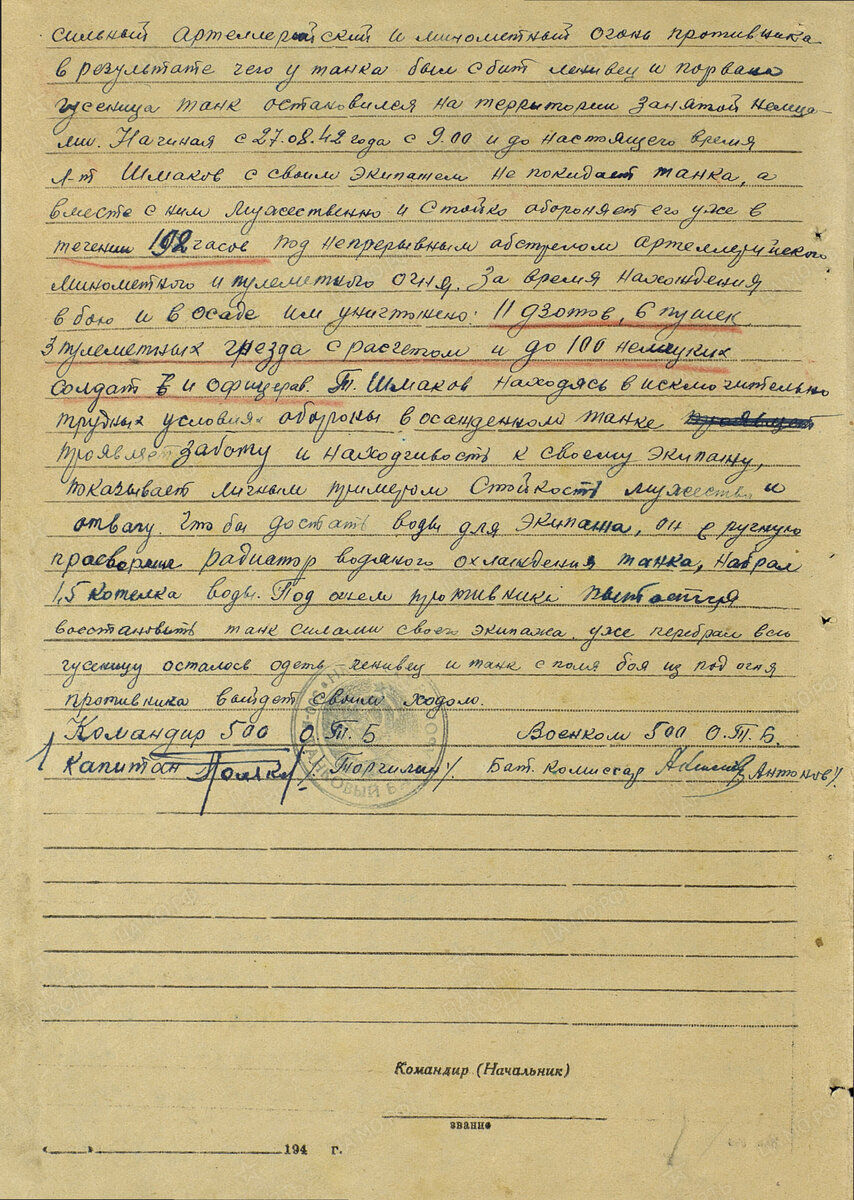 сильный артеллерийский и минометный огонь противника
в результате чего у танка был сбит ленивец и порвана
гусеница танк остановился на территории занятой немца-
ми. Начиная с 27.08.42 года с 9.00 и до настоящего время
Л-т Шмаков с своим экипажем не покидает танка, а
вместе с ним мужественно и стойко обороняет его уже в
течении 192 часов под непрерывным обстрелом артеллерийского
минометного и пулеметного огня. За время нахождения
в бою и в осаде им уничтожено: 11 дзотов, 6 пушек,
3 пулеметных гнезда с расчетом и до 100 немецких
солдат и офицеров. Т. Шмаков находясь в исключительно
трудных условиях обороны в осажденном танке
проявляет заботу и находчивость к своему экипажу,
показывает личным примером стойкость мужество и
отвагу. Что бы достать воды для экипажа, он в ручную
просверлил радиатор водяного охлаждения танка, набрал
1,5 котелка воды. Под огнем противника пытается
восстановить танк силами своего экипажа. уже перебрал всю
гусеницу осталось одеть ленивец и танк с поля боя из под огня
противника выйдет своим ходом.
Командир 500 О.Т.Б Военком 500 О.Т.Б.
Капитан Бат. Комиссар /Антонов/.
ТАНКОВЫЙ
Командир (Начальник)
звание
194 г.